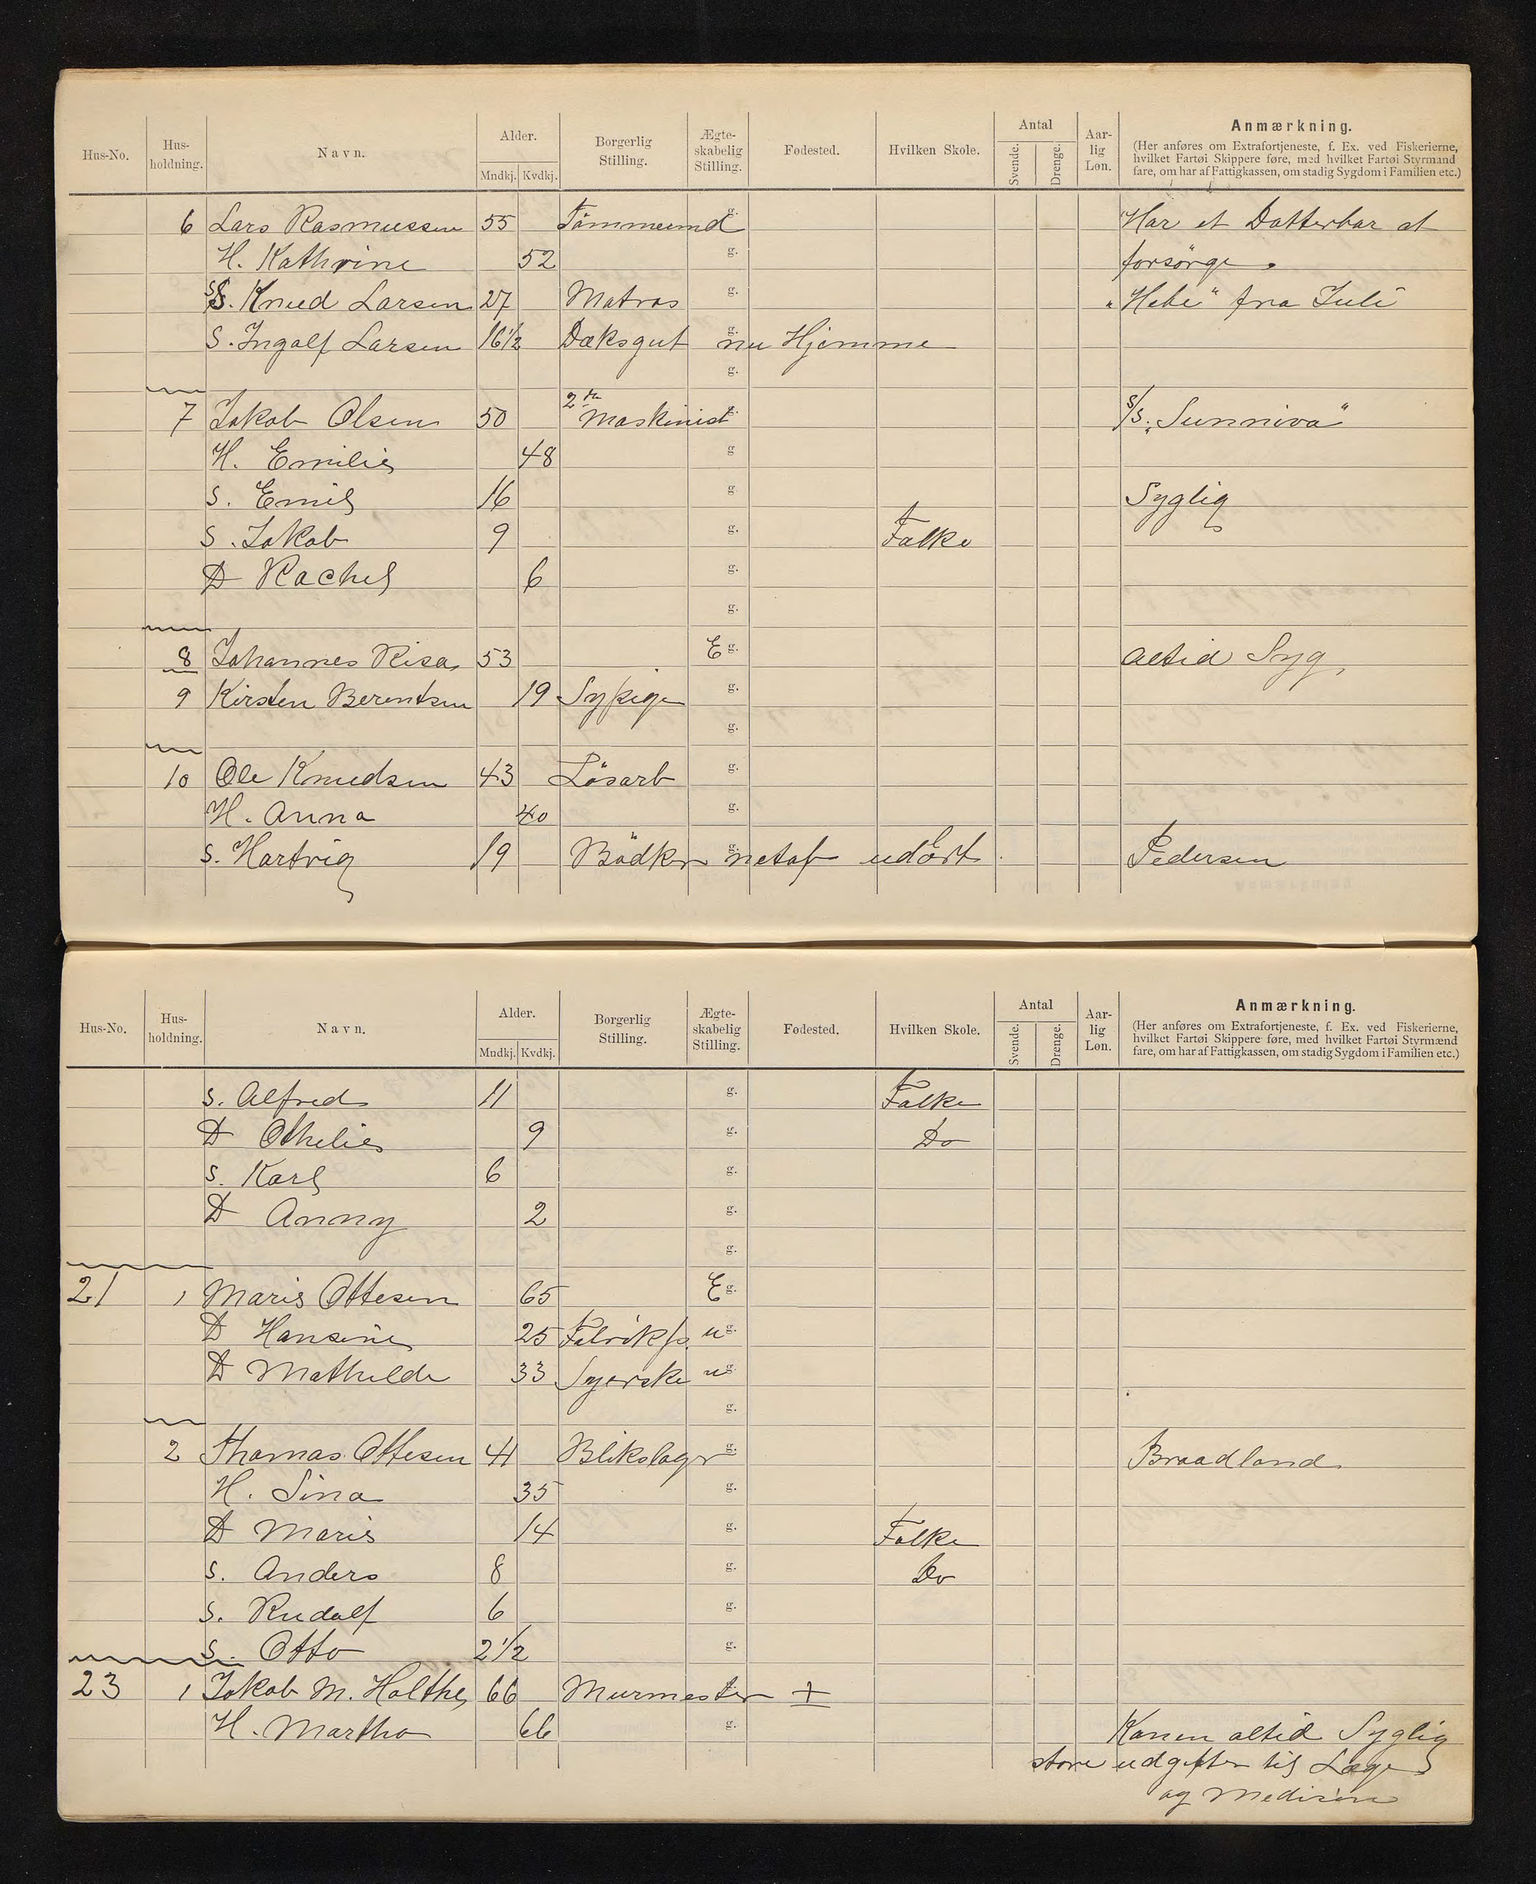 Hus-No. Hus-holdning. Navn. Alder. Mndkj. Kvdkj. Borgerlig Stilling. Ægte-skabelig Stilling. Fødested. Hvilken Skole. Antal Svende. Drenge. Aar-lig Løn. Anmærkning.
(Her anføres om Extrafortjeneste, f. Ex. ved Fiskerierne,
hvilket Fartøi Skippere føre, med hvilket Fartøi Styrmænd
fare, om har af Fattigkassen, om stadig Sygdom i Familien etc.)
6 Lars Rasmussen 55 Tömmermd g. Har et Datterbar at
H. Kathrine 52 g. forsörge.
S. Knud Larsen 27 Matros g. "Hebe" fra Juli
S. Ingolf Larsen 16 1/2 Dæksgut g. nu Hjemme
g.
7 Jakob Olsen 50 2den Maskinist g. S/S. "Sunniva"
H. Emilie 48 g
S. Emil 16 g Syglig
S. Jakob 9 g. Folke
D Rachel 6 g.
g.
8 Johannes Risa 53 E g. altid Syg,
9 Kirsten Berentsen 19 Sypige g.
g.
10 Ole Knudsen 43 Lösarb g.
H. Anna 40 g.
S. Hartvig 19 Bödker g. netop udlært Pedersen
Hus-No. Hus-holdning. Navn. Alder. Mndkj. Kvdkj. Borgerlig Stilling. Ægte-skabelig Stilling. Fødested. Hvilken Skole. Antal Svende. Drenge. Aar-lig Løn. Anmærkning.
(Her anføres om Extrafortjeneste, f. Ex. ved Fiskerierne,
hvilket Fartøi Skippere føre, med hvilket Fartøi Styrmænd
fare, om har af Fattigkassen, om stadig Sygdom i Familien etc.)
S. Alfred 11 g. Folke
D Othelie 9 g. Do
S. Karl 6 g.
D Anny 2 g.
g.
21 1 Marie Ottesen 65 E g.
D Hansine 25 u g.
D Mathilde 33 Syerske u g.
g.
2 Thomas Ottesen 41 Blikslager g. Braadland
H. Sina 35 g.
D Marie 14 g. Folke
S. Anders 8 g. Do
S. Rudolf 6 g.
S. Otto 2 1/2 g.
23 1 Jakob M. Holthe 66 Murmester g. +
H. Martha 66 g. Konen altid Syglig
store udgifter til Læge
og Medisin